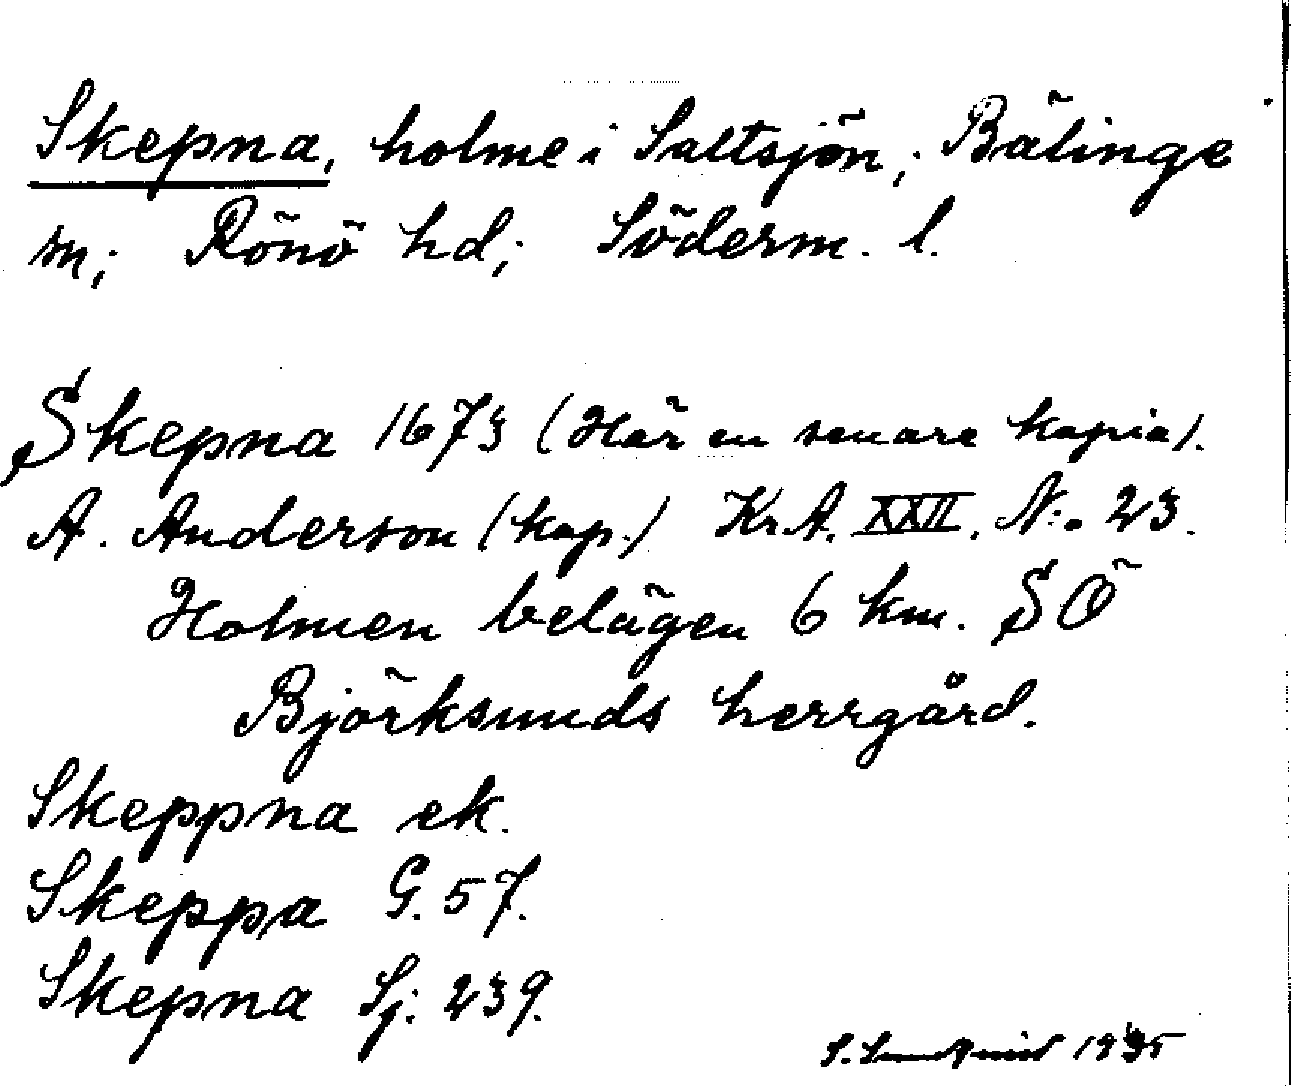 Skepna, holme i Saltsjön; Bälinge
sn; Rönö hd; Söderm. l.
Skepna 1673 (Här en senare kopia).
A. Anderson (kop.) Kr.A. XXII. No. 23.
Holmen belägen 6 km. SÖ
Björksunds herrgård.
Skeppna ek.
Skeppa G. 57.
Skepna Sj: 239.
S. Lundqvist 1935